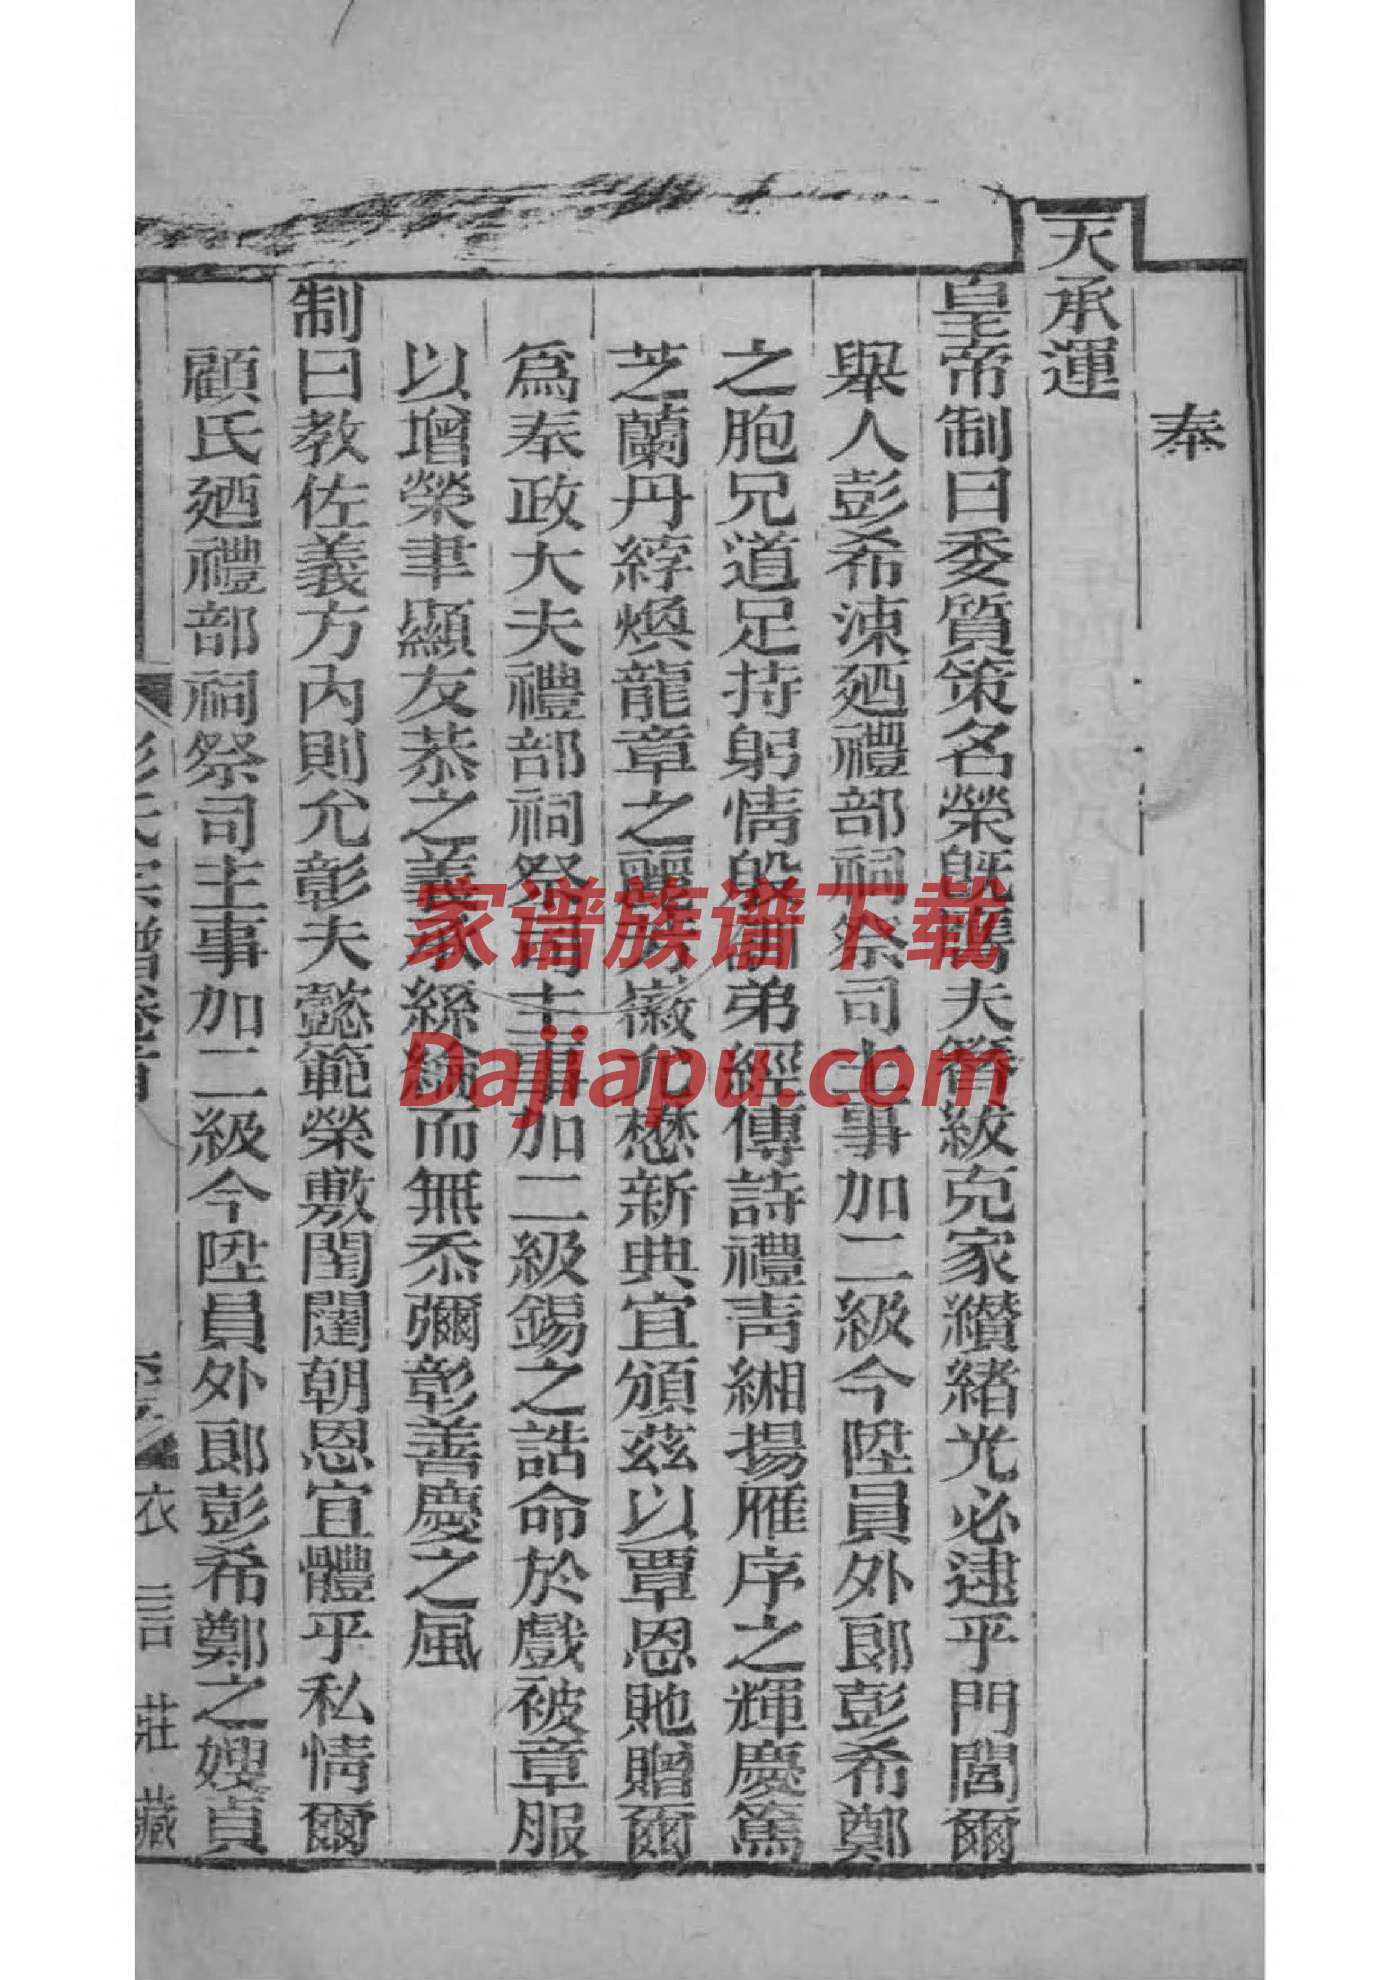 奉
天承運
皇帝制曰委質策名榮旣膺夫簪紱克家纘緒光必逮乎門閭爾
舉人彭希涑廼禮部祠祭司主事加二級今陞員外郎彭希鄭
之胞兄道足持躬情殷訓弟經傳詩禮靑緗揚雁序之輝慶篤
芝蘭丹綍煥龍章之麗芳徽允懋新典宜頒茲以覃恩貤贈爾
爲奉政大夫禮部祠祭司主事加二級錫之誥命於戲被章服
以增榮聿顯友恭之義承絲綸而無忝彌彰善慶之風
制曰敎佐義方內則允彰夫懿範榮敷閨闥朝恩宜體乎私情爾
顧氏廼禮部祠祭司主事加二級今陞員外郎彭希鄭之嫂貞
彭氏宗譜卷首
衣言莊藏
家谱族谱下载
Dajiapu.com